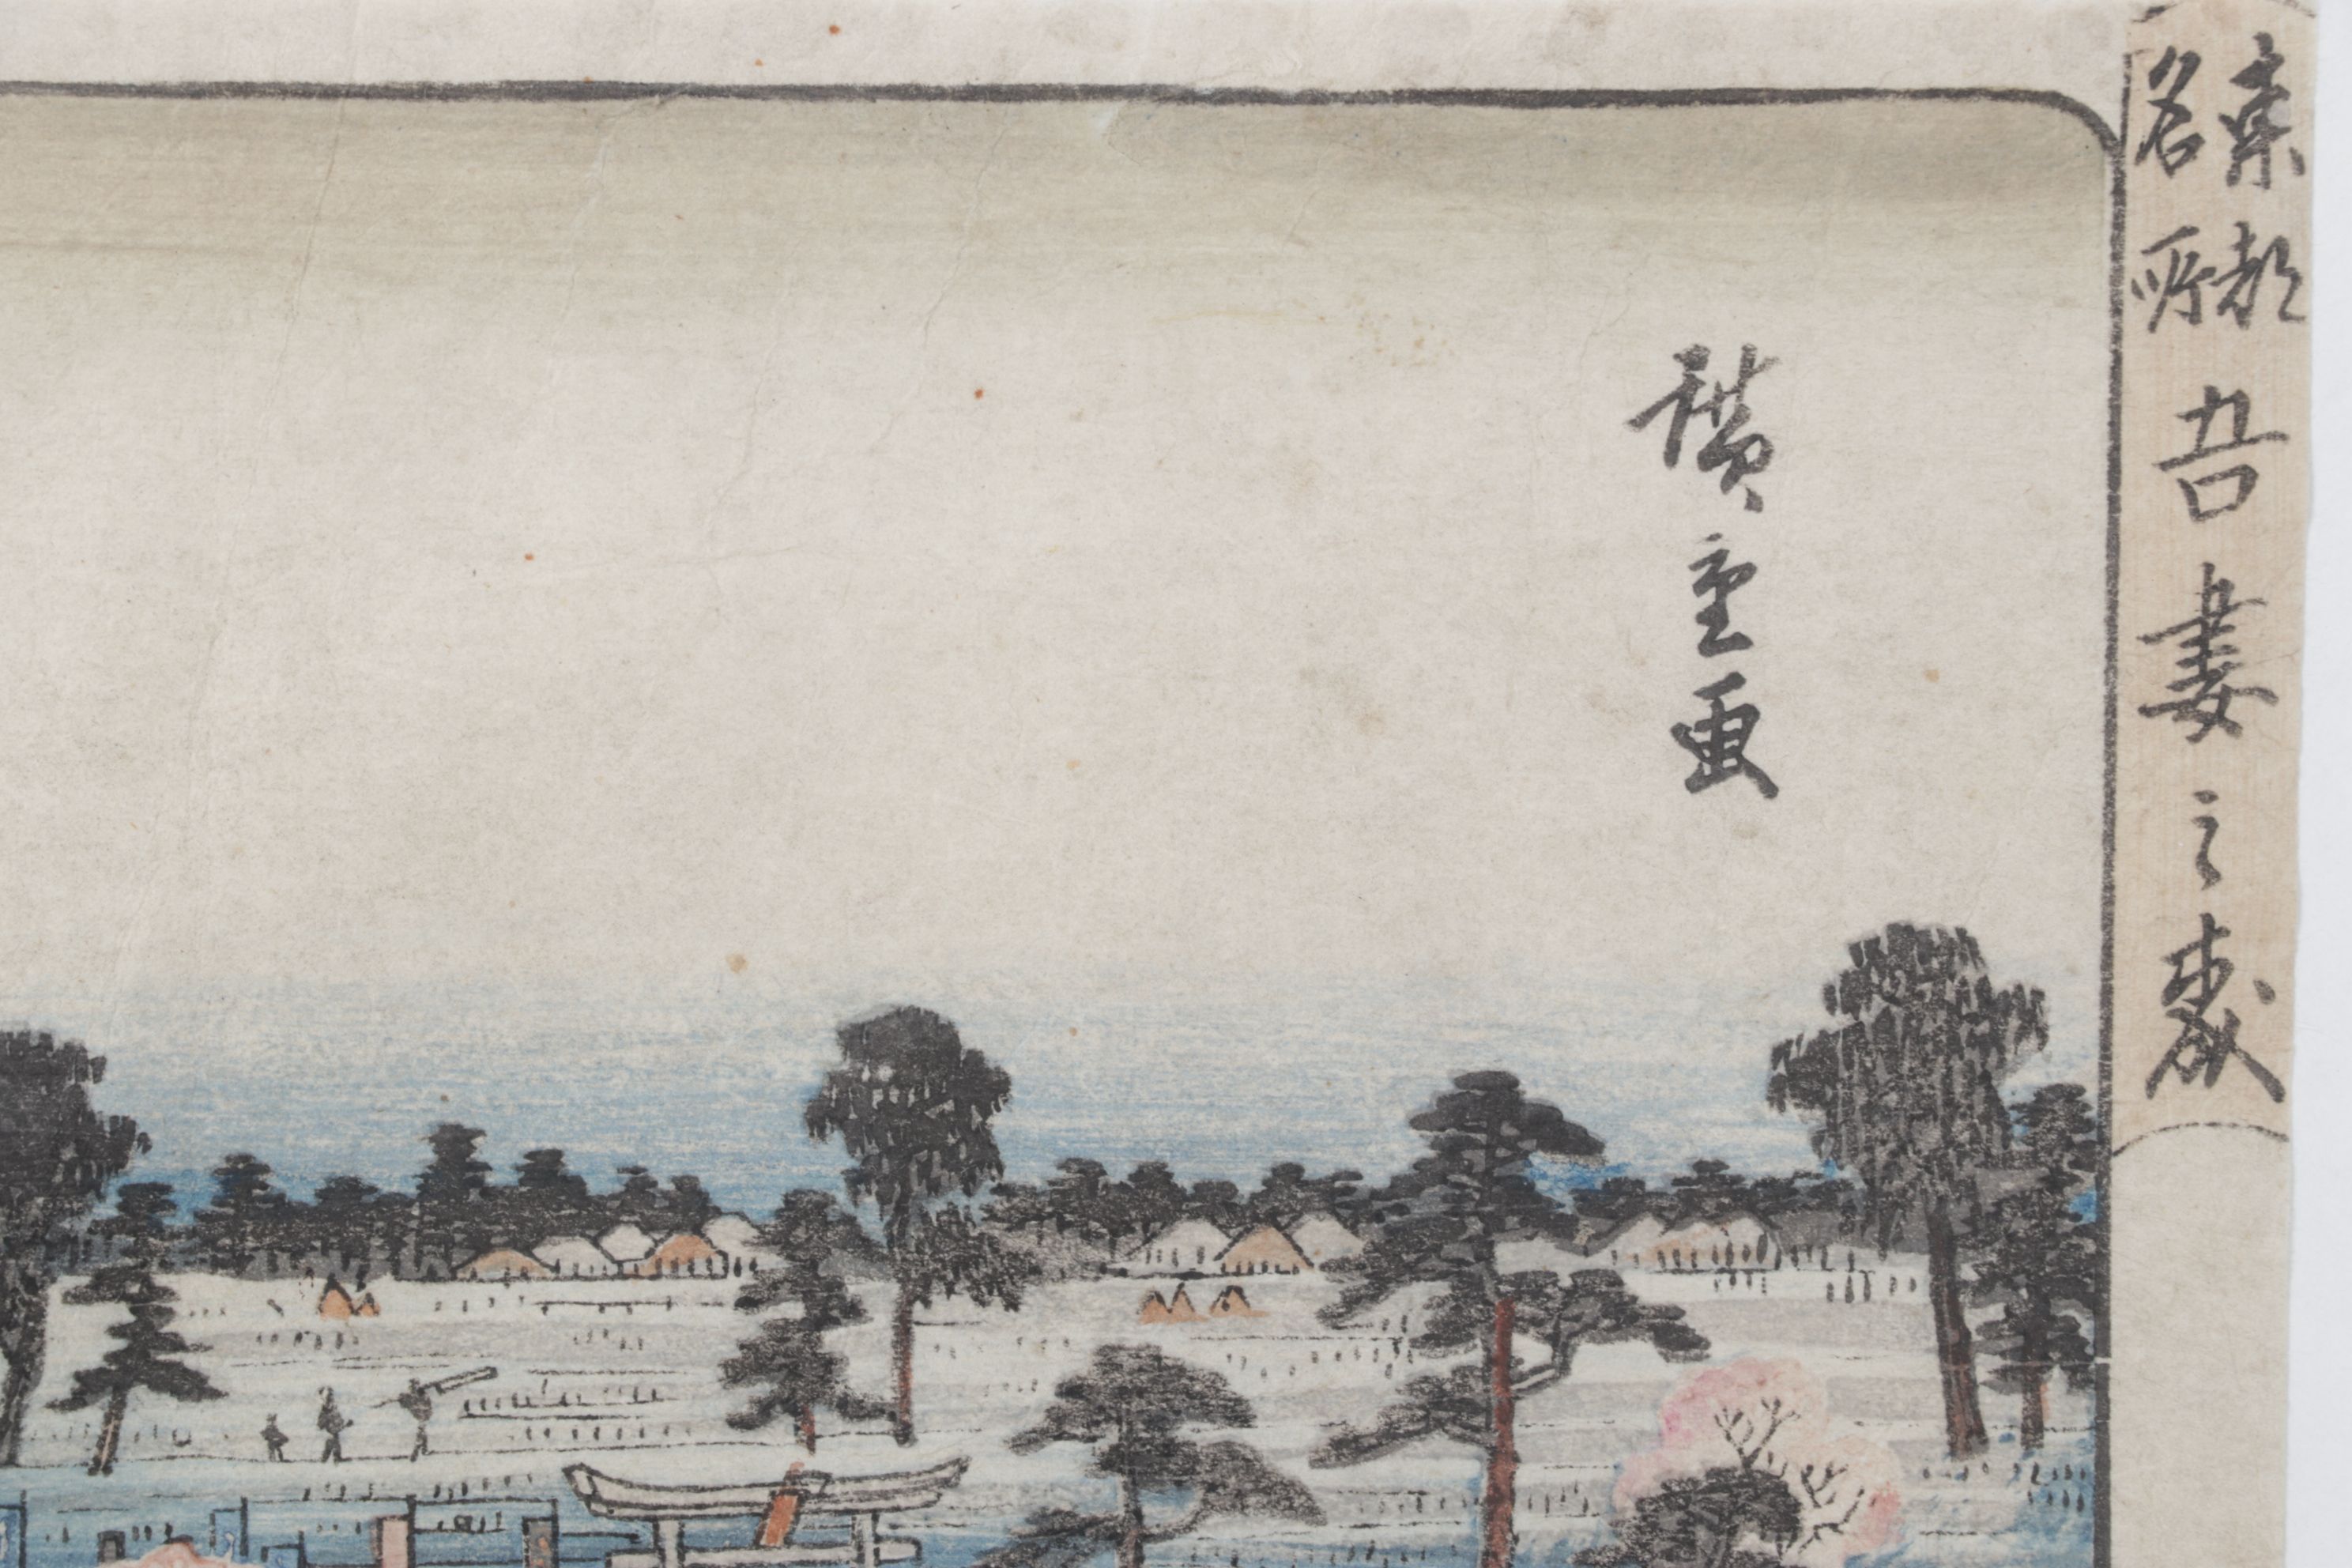 東都
名所
吾妻之森
廣重画